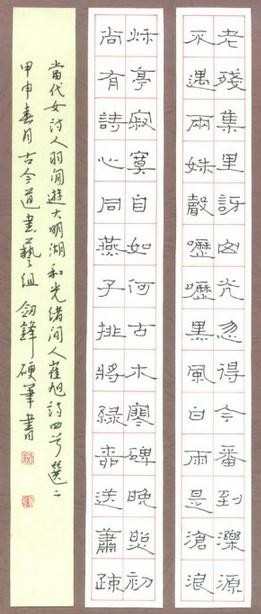 老殘集里訝幽光忽得今番到濼源
不遇兩姝聲嚦嚦黑風白雨是滄浪
秌亭寂寞自如何古木寒碑晚照初
尚有詩心同燕子排將綠送蕭疏
當代女詩人羽閒遊大明湖和光緒間人崔旭詩四首選二
甲申春月古今道書藝組劍鋒硬筆書